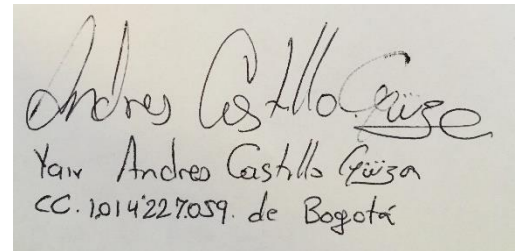 Andres Castillo Güiza
Yair Andres Castillo Güiza
CC. 1.014'227.059. de Bogotá